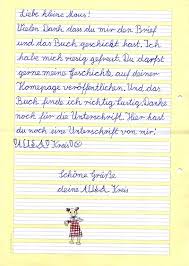 Liebe kleine Maus!
Vielen Dank, dass du mir den Brief
und das Buch geschickt hast. Ich
habe mich riesig gefreut. Du darfst
gerne meine Geschichte auf deiner
Homepage veröffentlichen. Und das
Buch finde ich richtig lustig. Danke
noch für die Unterschrift. Hier hast
du noch eine Unterschrift von mir:
Schöne Grüße
deine